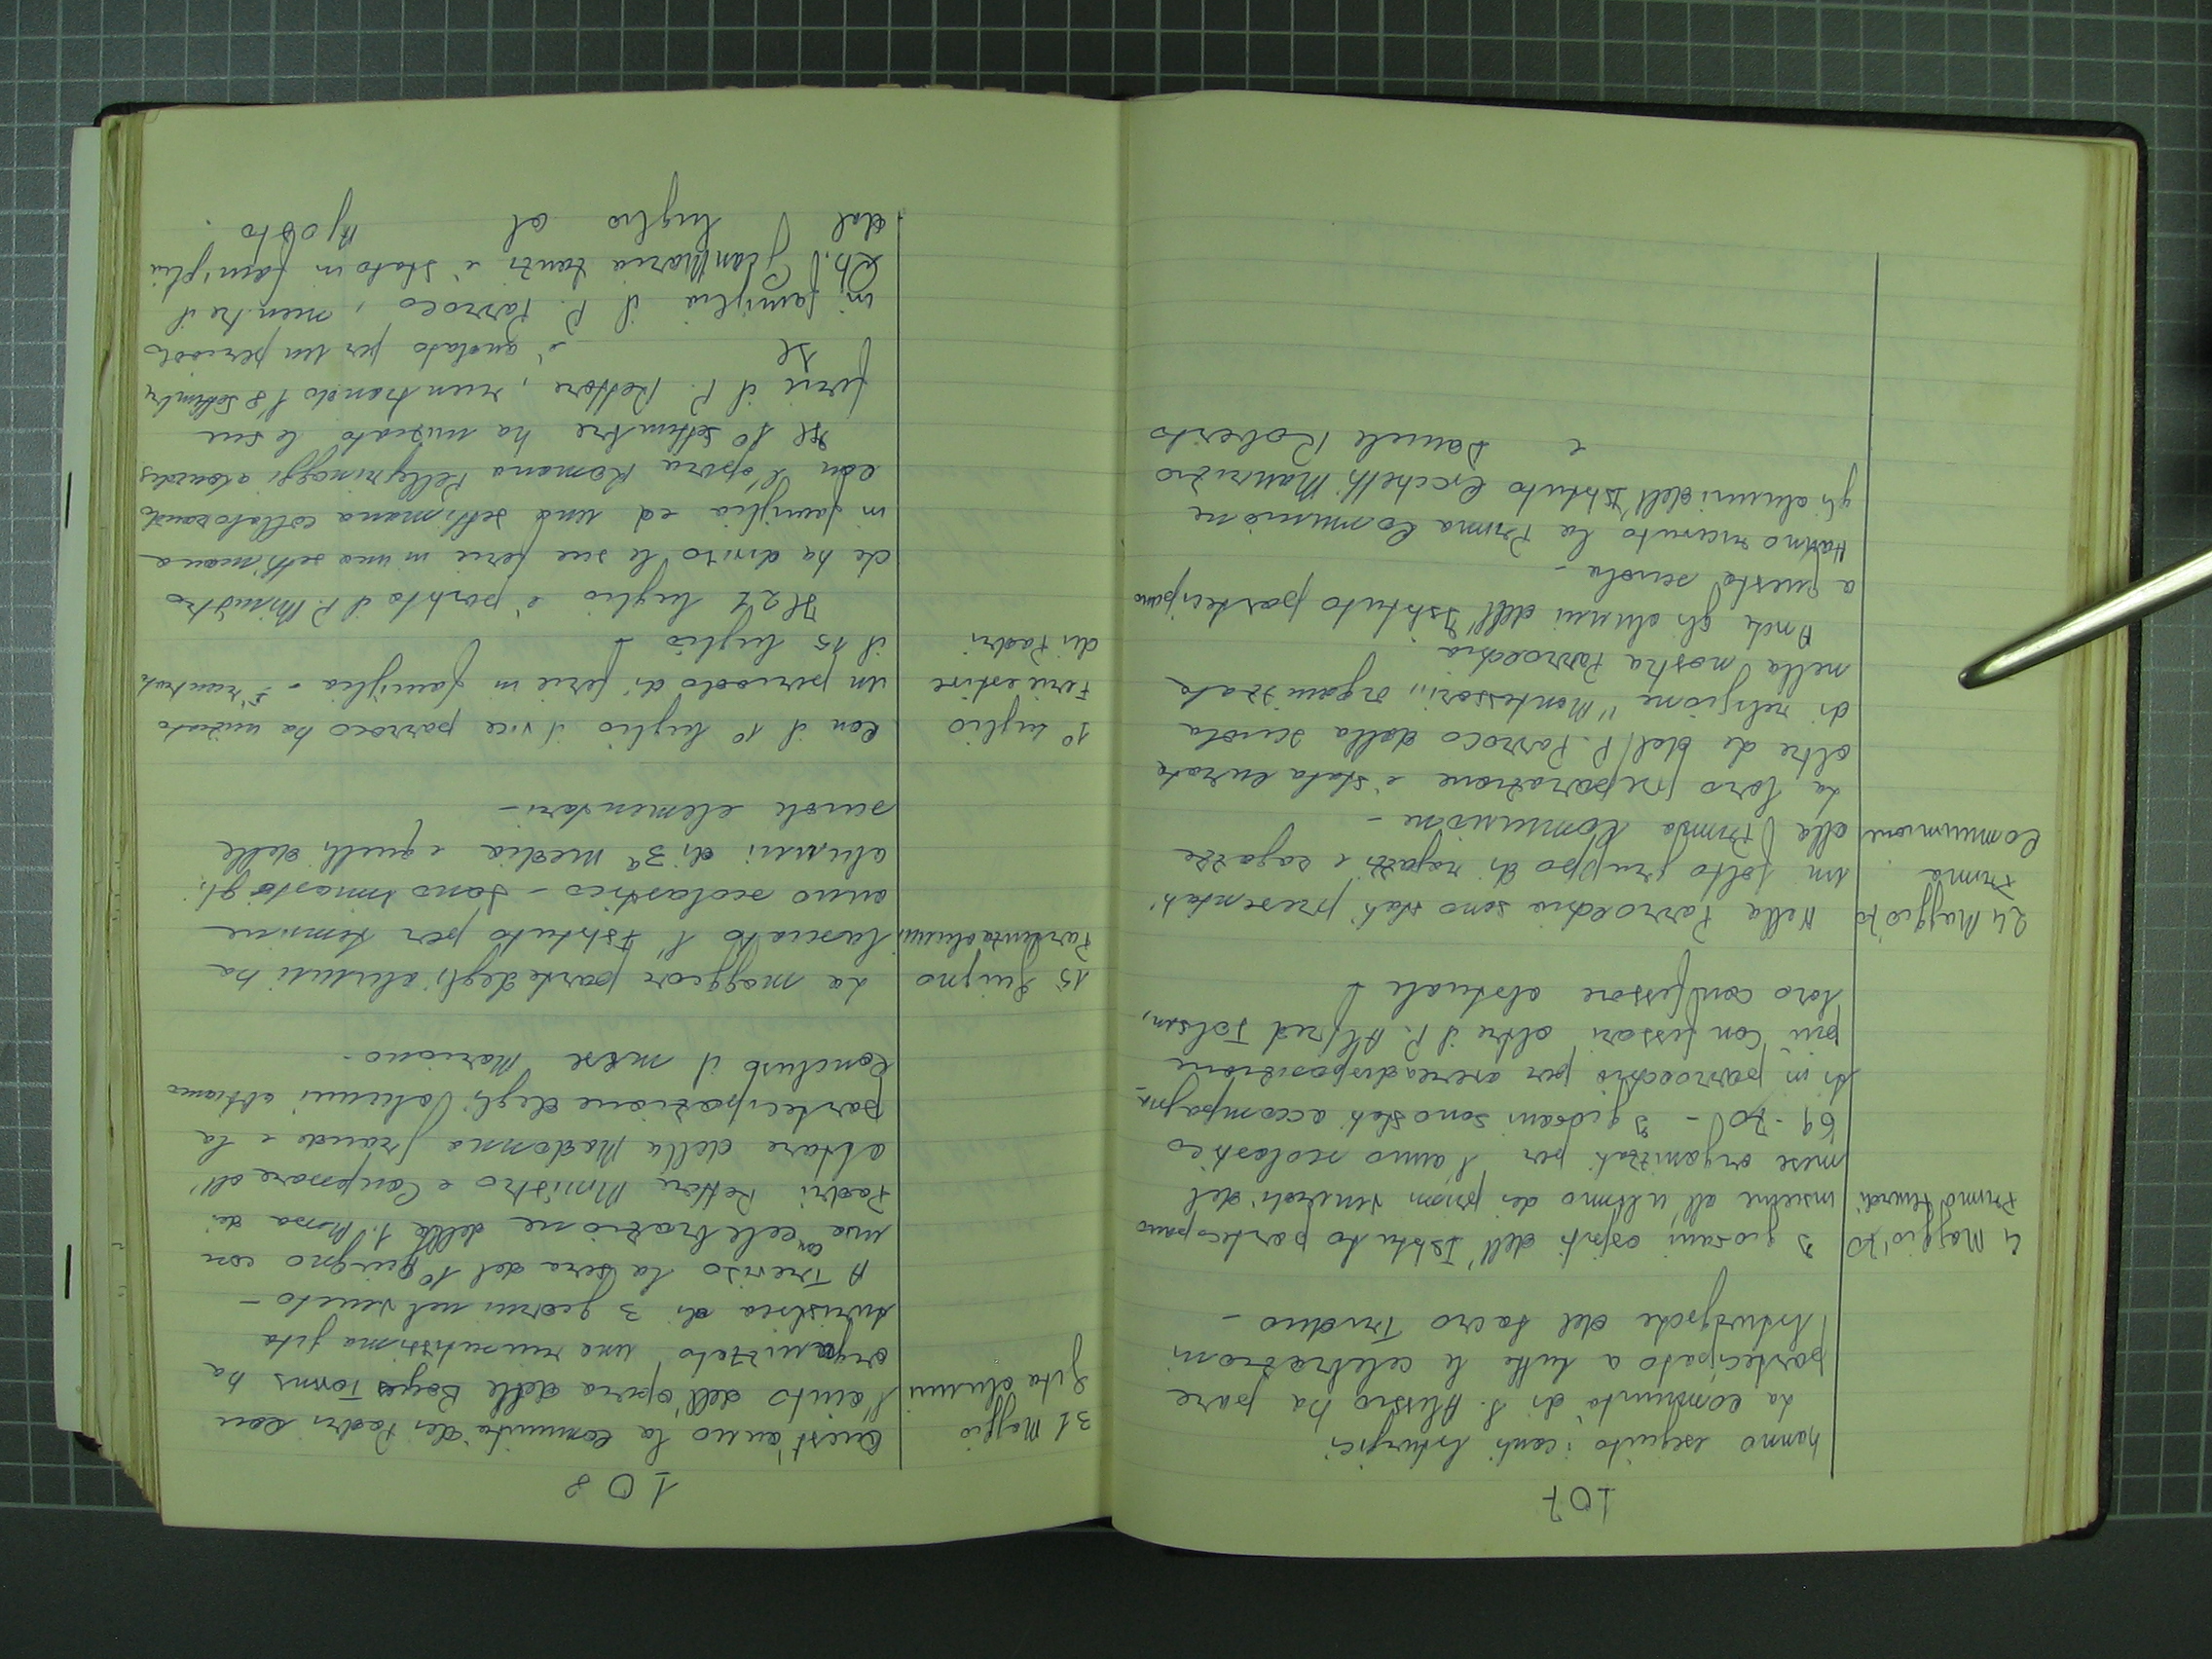 107
hanno eseguito i canti liturgici
La comunità di S. Alessio ha pure
partecipato a tutte le celebrazioni
liturgiche del sacro Triduo -
4 Maggio '70
Primo Venerdì
I giovani ospiti dell'Istituto partecipano
insieme all'ultimo dei primi venerdì del
mese organizzati per l'anno scolastico
69 - 70 - I giovani sono stati accompagna-
ti in parrocchia per avere a disposizione
più confessori oltre il P. Alfred
loro confessore abituale -
24 Maggio '70
Prima
Comunione
Nella Parrocchia sono stati presentati
un folto gruppo di ragazzi e ragazze
alla Prima Comunione -
La loro preparazione è stata curata
oltre che dal P. Parroco dalla scuola
di religione "Montessori" organizzata
nella nostra Parrocchia
Anche gli alunni dell'Istituto partecipano
a questa scuola -
Hanno ricevuto la Prima Comunione
gli alunni dell'Istituto Maurizio
e Daniele Roberto
108
31 Maggio
Gita alunni
Quest'anno la comunità dei Padri con
l'aiuto dell'opera delle Boys Towns ha
organizzato una riuscitissima gita
turistica di 3 giorni nel veneto -
A Treviso la sera del 1° giugno con
una con celebrazione della S. Messa dei
Padri Rettore Ministro e Confessore all'
altare della Madonna grande e la
partecipazione degli alunni abbiamo
concluso il mese Mariano -
15 Giugno
Partenza alunni
La maggior parte degli alunni ha
lasciato l'Istituto per termine
anno scolastico - sono rimasti gli
alunni di 3ª media e quelli delle
scuole elementari -
1° luglio
Ferie estive
dei Padri
Con il 1° luglio il vice parroco ha iniziato
un periodo di ferie in famiglia - È rientrato
il 15 luglio -
Il 21 luglio è partito il P. Ministro
che ha diviso le sue ferie in una settimana
in famiglia ed una settimana collaborando
con l'opera Romana Pellegrinaggi a Lourdes
Il 10 settembre ha iniziato le sue
ferie il P. Rettore, rientrando l'8 Settembre
Il è andato per un periodo
in famiglia il P. Parroco, mentre il
Ch. GianMaria è stato in famiglia
dal luglio al Agosto.